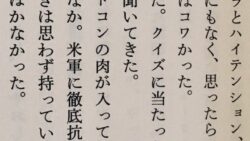 ラとハイテンション、
にもなく、思ったら
はコワかった。
た。クイズに当たっ
聞いてきた。
ドコンの肉が入って
なか。米軍に徹底抗
きは思わず持ってい
はかなかった。